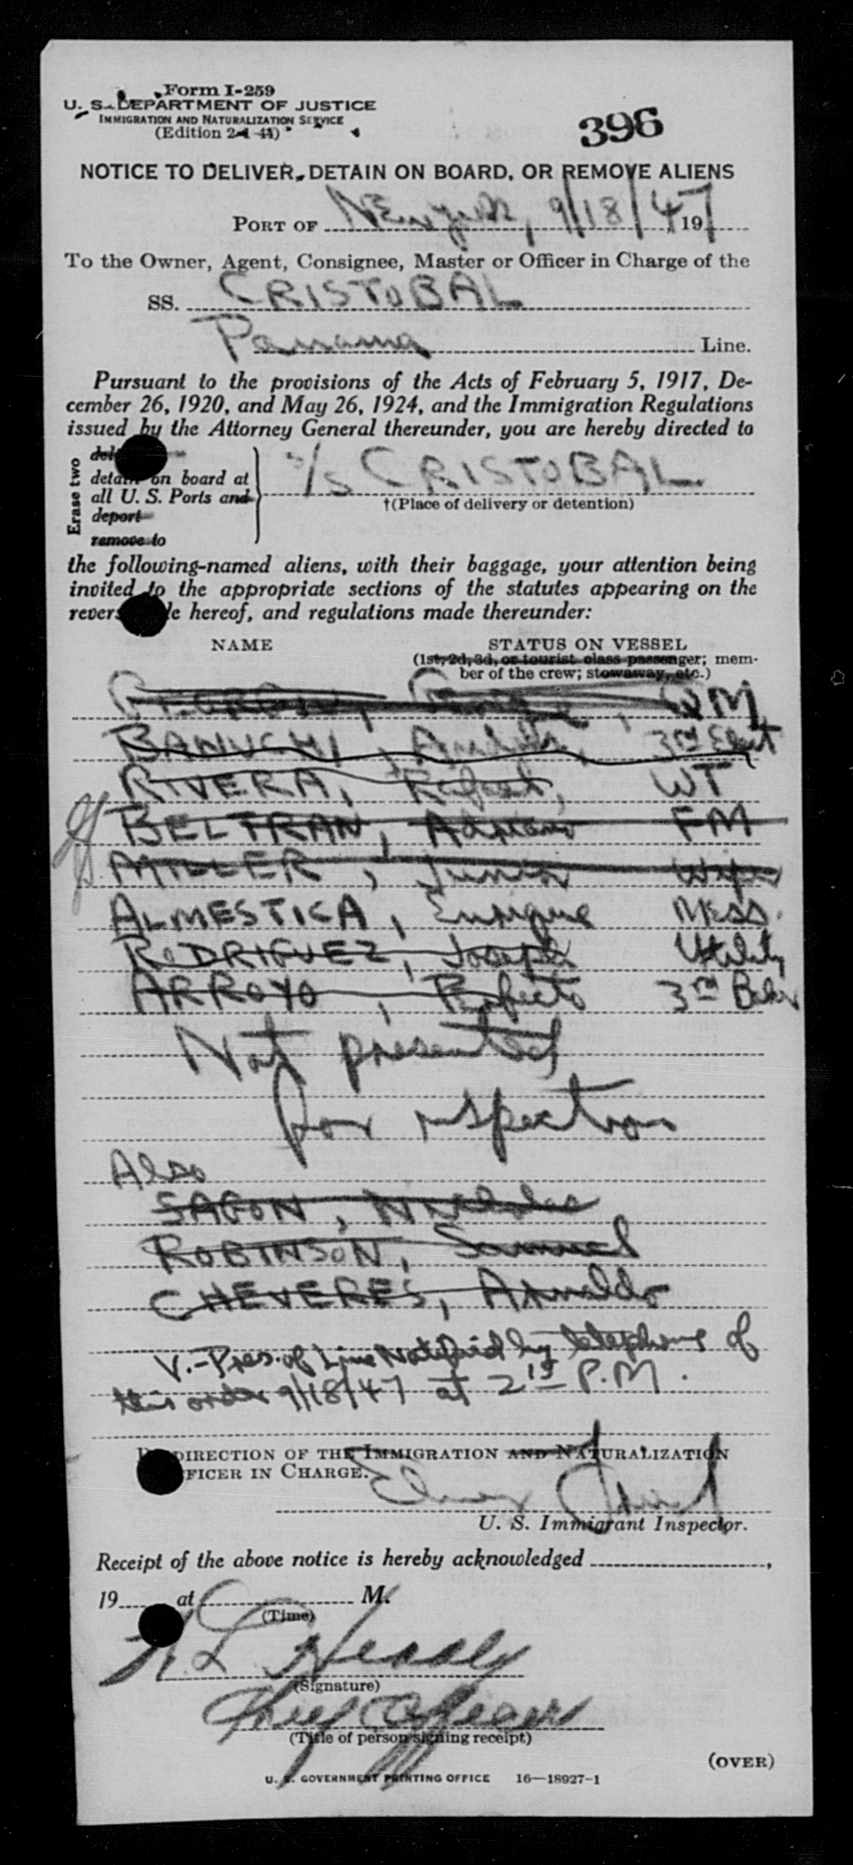 Form I-259
U. S. DEPARTMENT OF JUSTICE
IMMIGRATION AND NATURALIZATION SERVICE
(Edition 2-1-44)
396
NOTICE TO DELIVER, DETAIN ON BOARD, OR REMOVE ALIENS
PORT OF New York, 9/18/47 19
To the Owner, Agent, Consignee, Master or Officer in Charge of the
SS. CRISTOBAL
Panama Line.
Pursuant to the provisions of the Acts of February 5, 1917, De-
cember 26, 1920, and May 26, 1924, and the Immigration Regulations
issued by the Attorney General thereunder, you are hereby directed to
Erase two
detain on board at
all U. S. Ports and
deport
remove to
S/S CRISTOBAL
†(Place of delivery or detention)
the following-named aliens, with their baggage, your attention being
invited to the appropriate sections of the statutes appearing on the
hereof, and regulations made thereunder:
NAME STATUS ON VESSEL
(1st, 2d, 3d, or tourist class passenger; mem-
ber of the crew; stowaway, etc.)
QM
BANUCHI, 3rd Elect
RIVERA, Rafael, WT
BELTRAN, Adriano FM
MILLER, Junior Wiper
ALMESTICA, Enrique Mess.
RODRIGUEZ, Joseph Utility
ARROYO, Perfecto 3rd Baker
Not presented
for inspection
Also
SAGON, Nicholas
ROBINSON, Samuel
CHEVERES, Arnaldo
V.-Pres. of Line Notified by telephone of
this order 9/18/47 at 2 15 P.M.
DIRECTION OF THE IMMIGRATION AND NATURALIZATION
OFFICER IN CHARGE.
Elmer
U. S. Immigrant Inspector.
Receipt of the above notice is hereby acknowledged
19 at M.
(Time)
(Signature)
Chief Officer
(Title of person signing receipt)
(OVER)
U. S. GOVERNMENT PRINTING OFFICE 16—18927-1